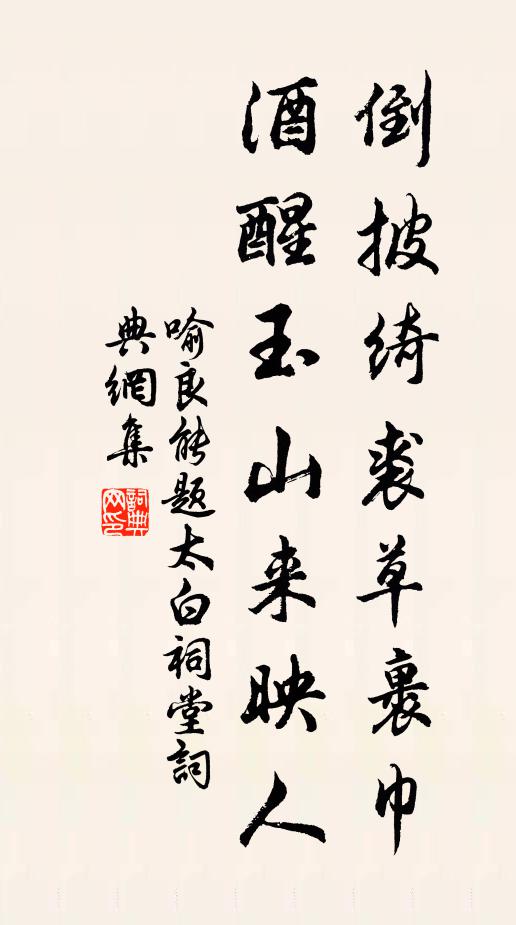 倒披綺裘草裹巾
酒醒玉山来映人
喻良能題太白祠堂詞
典網集
詞典
网印